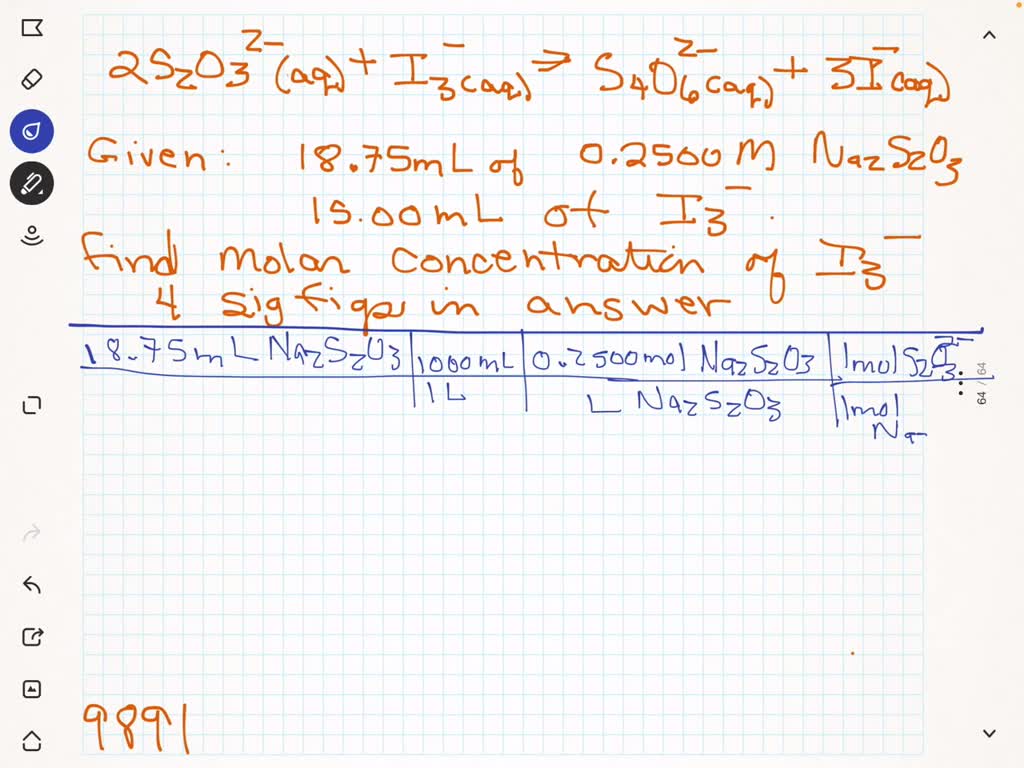 2S₂O₃²⁻(aq) + I₃⁻(aq) ⇒ S₄O₆²⁻(aq) + 3I⁻(aq)
Given: 18.75mL of 0.2500 M Na₂S₂O₃
15.00mL of I₃⁻.
find molar concentration of I₃⁻
4 sig figs in answer
18.75mL Na₂S₂O₃ | 1000mL | 0.2500mol Na₂S₂O₃ | 1mol S₂O₃²⁻
1L | L Na₂S₂O₃ | 1mol
Na
64 / 64
9891